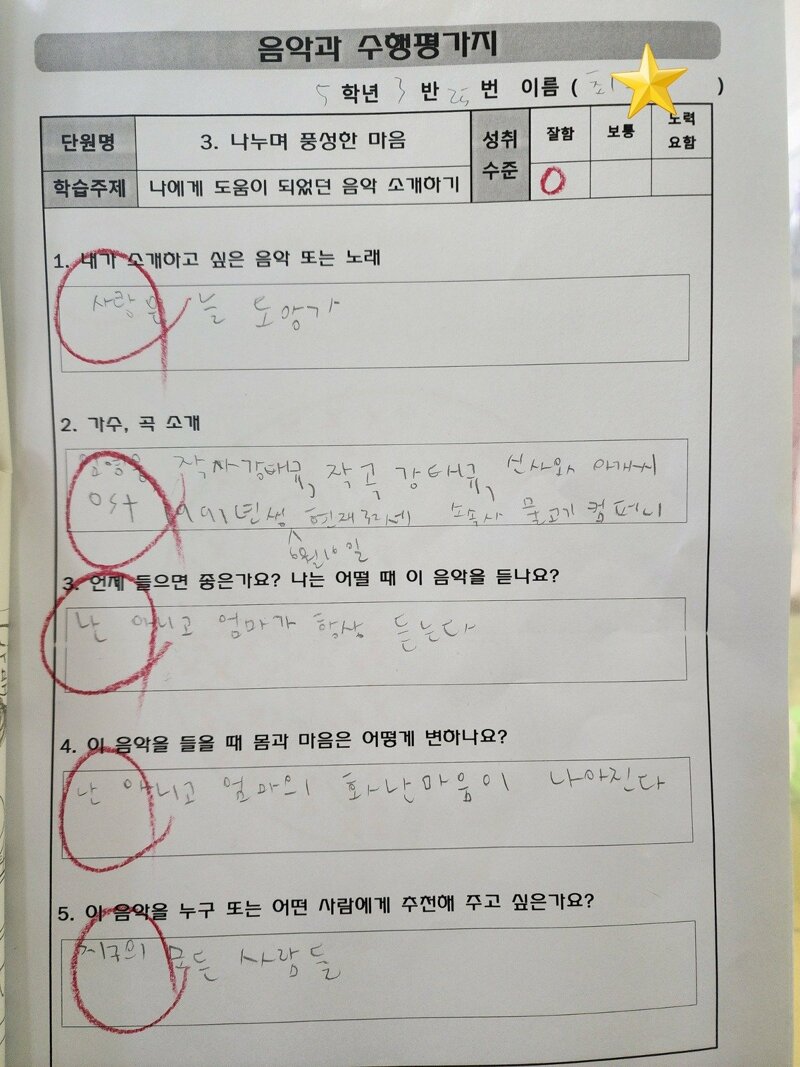 음악과 수행평가지
5 학년 3 반 25 번 이름 ( 최 )
단원명 3. 나누며 풍성한 마음 성취 수준 잘함 보통 노력 요함
학습주제 나에게 도움이 되었던 음악 소개하기 O
1. 내가 소개하고 싶은 음악 또는 노래
사랑은 늘 도망가
2. 가수, 곡 소개
임영웅 작사강태규, 작곡 강태규, 신사와 아가씨
ost 1991년생 현재 소속사 물고기 컴퍼니
6월16일
3. 언제 들으면 좋은가요? 나는 어떨 때 이 음악을 듣나요?
난 아니고 엄마가 항상 듣는다
4. 이 음악을 들을 때 몸과 마음은 어떻게 변하나요?
난 아니고 엄마의 화난마음이 나아진다
5. 이 음악을 누구 또는 어떤 사람에게 추천해 주고 싶은가요?
지구의 모든 사람들